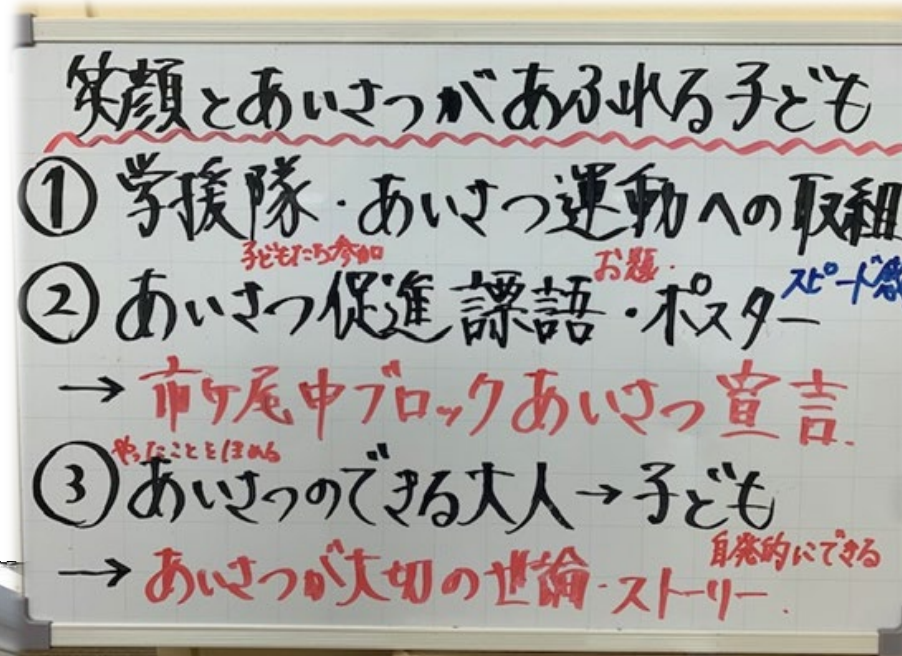 笑顔とあいさつがあふれる子ども
① 学援隊・あいさつ運動への取組
子どもたち参加
お題.
スピード感
② あいさつ促進 標語・ポスター
→ 市ケ尾中ブロックあいさつ宣言.
やったことをほめる
③ あいさつのできる大人→子ども
自発的にできる
→ あいさつが大切の世論・ストーリー.